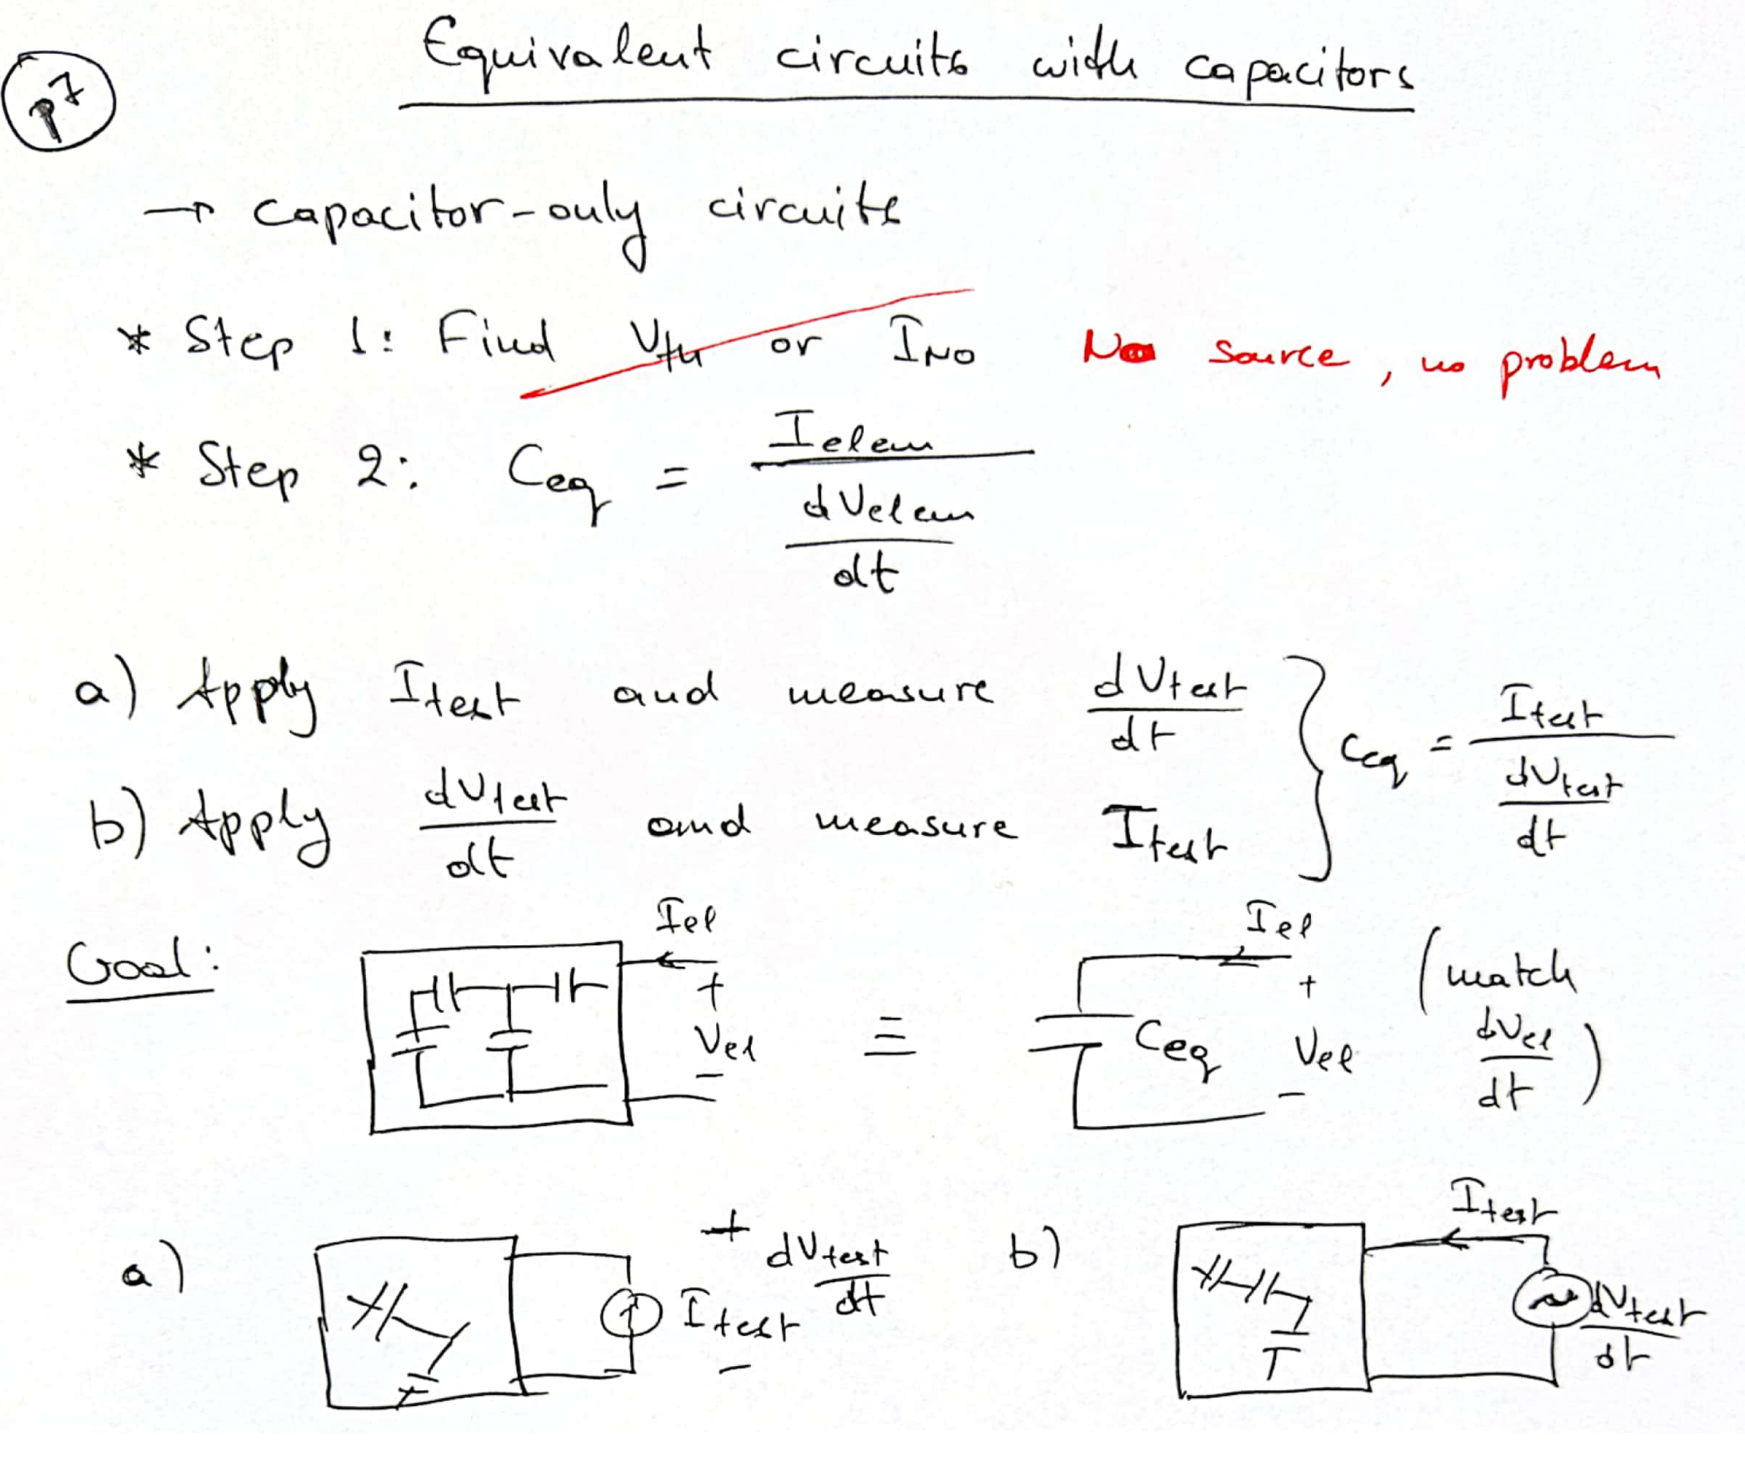 p7
Equivalent circuits with capacitors
→ capacitor-only circuits
* Step 1: Find VTH or INO No source, no problem
* Step 2: Ceq = Ielem / (dVelem / dt)
a) Apply Itest and measure dVtest / dt
b) Apply dVtest / dt and measure Itest
} Ceq = Itest / (dVtest / dt)
Goal:
Iel + Vel −
≡
Iel Ceq + Vel −
(match dVel / dt)
a) Itest + dVtest / dt −
b) Itest dVtest / dt